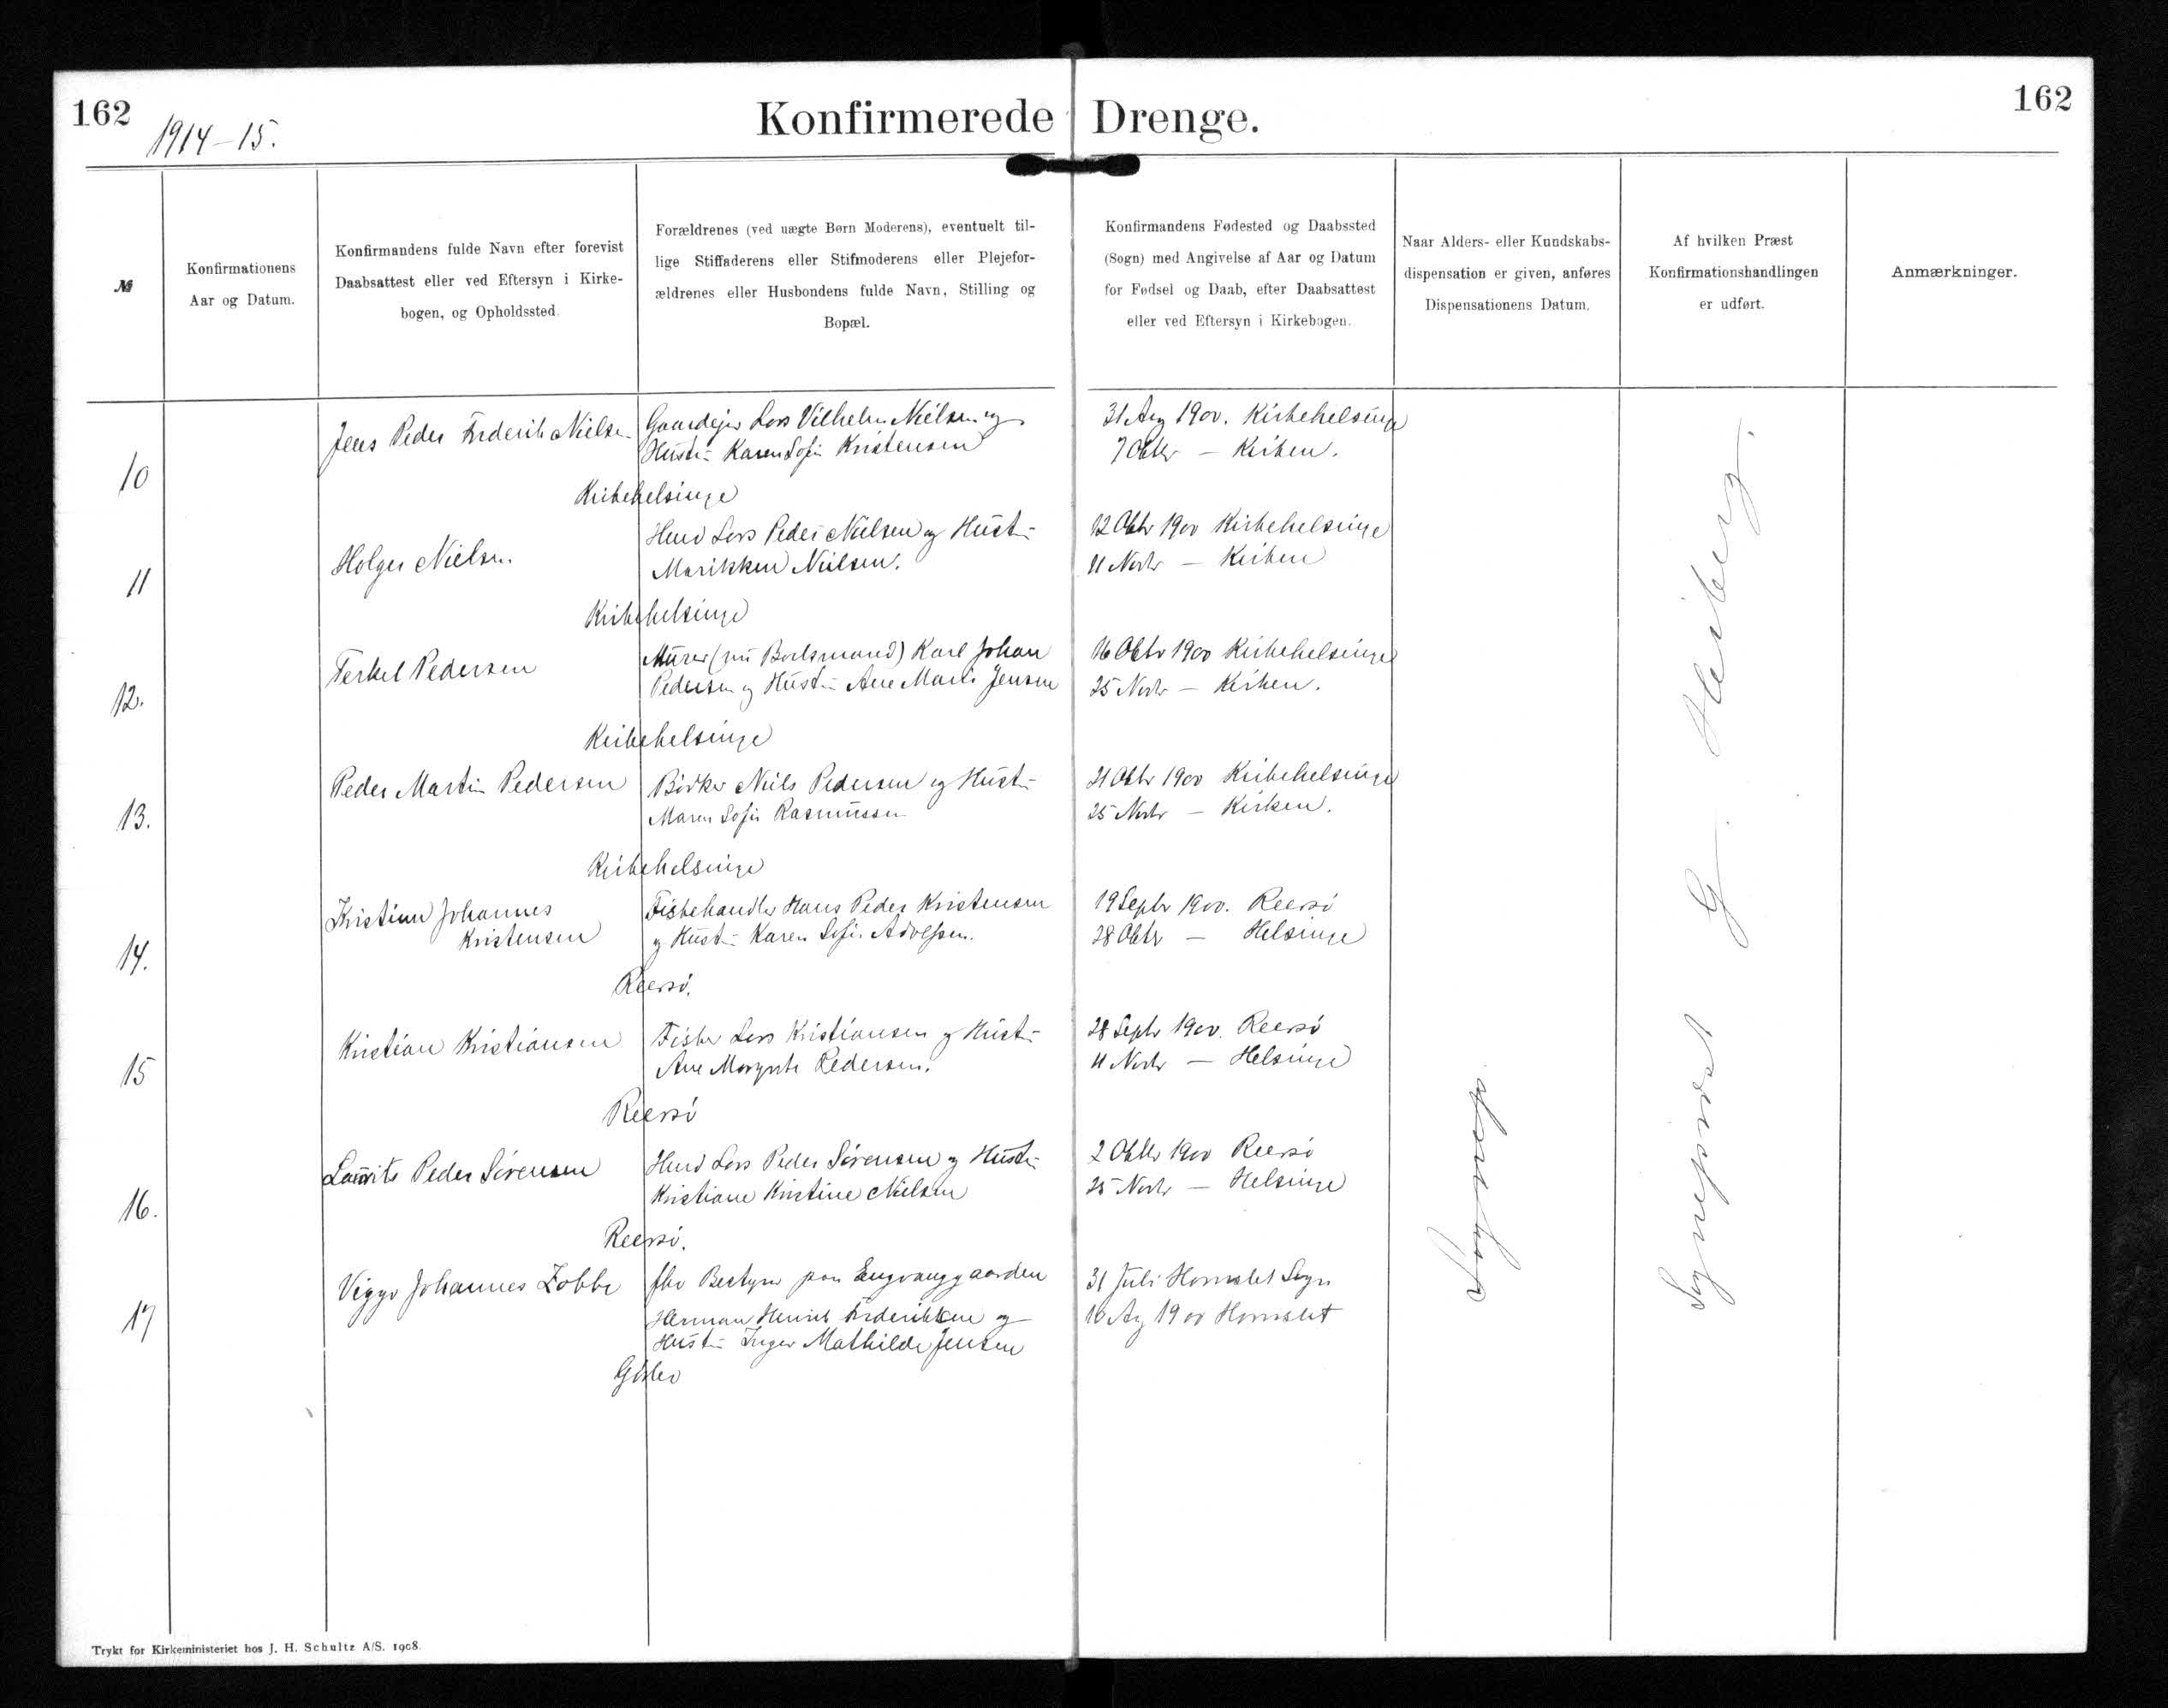 162
162
1914-15.
Konfirmerede Drenge.
№
Konfirmationens
Aar og Datum.
Konfirmandens fulde Navn efter forevist
Daabsattest eller ved Eftersyn i Kirke-
bogen, og Opholdssted.
Forældrenes (ved uægte Børn Moderens), eventuelt til-
lige Stiffaderens eller Stifmoderens eller Plejefor-
ældrenes eller Husbondens fulde Navn, Stilling og
Bopæl.
Konfirmandens Fødested og Daabssted
(Sogn) med Angivelse af Aar og Datum
for Fødsel og Daab, efter Daabsattest
eller ved Eftersyn i Kirkebogen.
Naar Alders- eller Kundskabs-
dispensation er given, anføres
Dispensationens Datum.
Af hvilken Præst
Konfirmationshandlingen
er udført.
Anmærkninger.
10
Jens Peder Frederik Nielsen
Gaardejer Lars Vilhelm Nielsen og
Hustru Karen Sofie Kristensen
Kirkehelsinge
31 Aug 1900. Kirkehelsinge
7 Oktbr — Kirken.
11
Holger Nielsen
Lars Peder Nielsen og Hustru
Marikken Nielsen.
Kirkehelsinge
12 Oktbr 1900 Kirkehelsinge
11 Novbr — Kirken
12.
Terkel Pedersen
Murer (nu Boelsmand) Karl Johan
Pedersen og Hustru Ane Marie Jensen
Kirkehelsinge
16 Oktbr 1900 Kirkehelsinge
25 Novbr — Kirken.
13.
Peder Martin Pedersen
Bødker Niels Pedersen og Hustru
Maren Sofie Rasmussen
Kirkehelsinge
21 Oktbr 1900 Kirkehelsinge
25 Novbr — Kirken.
14.
Kristian Johannes
Kristensen
Fiskehandler Hans Peder Kristensen
og Hustru Karen Sofie Adolfsen.
Reersø.
19 Septbr 1900. Reersø
28 Oktbr — Helsinge
15
Kristian Kristiansen
Fisker Lars Kristiansen og Hustru
Ane Margrete Pedersen.
Reersø
28 Septbr 1900. Reersø
11 Novbr — Helsinge
16.
Laurits Peder Sørensen
Lars Peder Sørensen og Hustru
Kristiane Kristine Nielsen
Reersø.
2 Oktbr 1900 Reersø
25 Novbr — Helsinge
17
Viggo Johannes Lobbe
fhv Bestyrer paa Engvanggaarden
Herman Henrik Frederiksen og
Hustru Inger Mathilde Jensen
Gørlev
31 Juli Hornslet Sogn
10 Aug 1900 Hornslet
Ingen
Sognepræst G. Heiberg.
Trykt for Kirkeministeriet hos J. H. Schultz A/S. 1908.